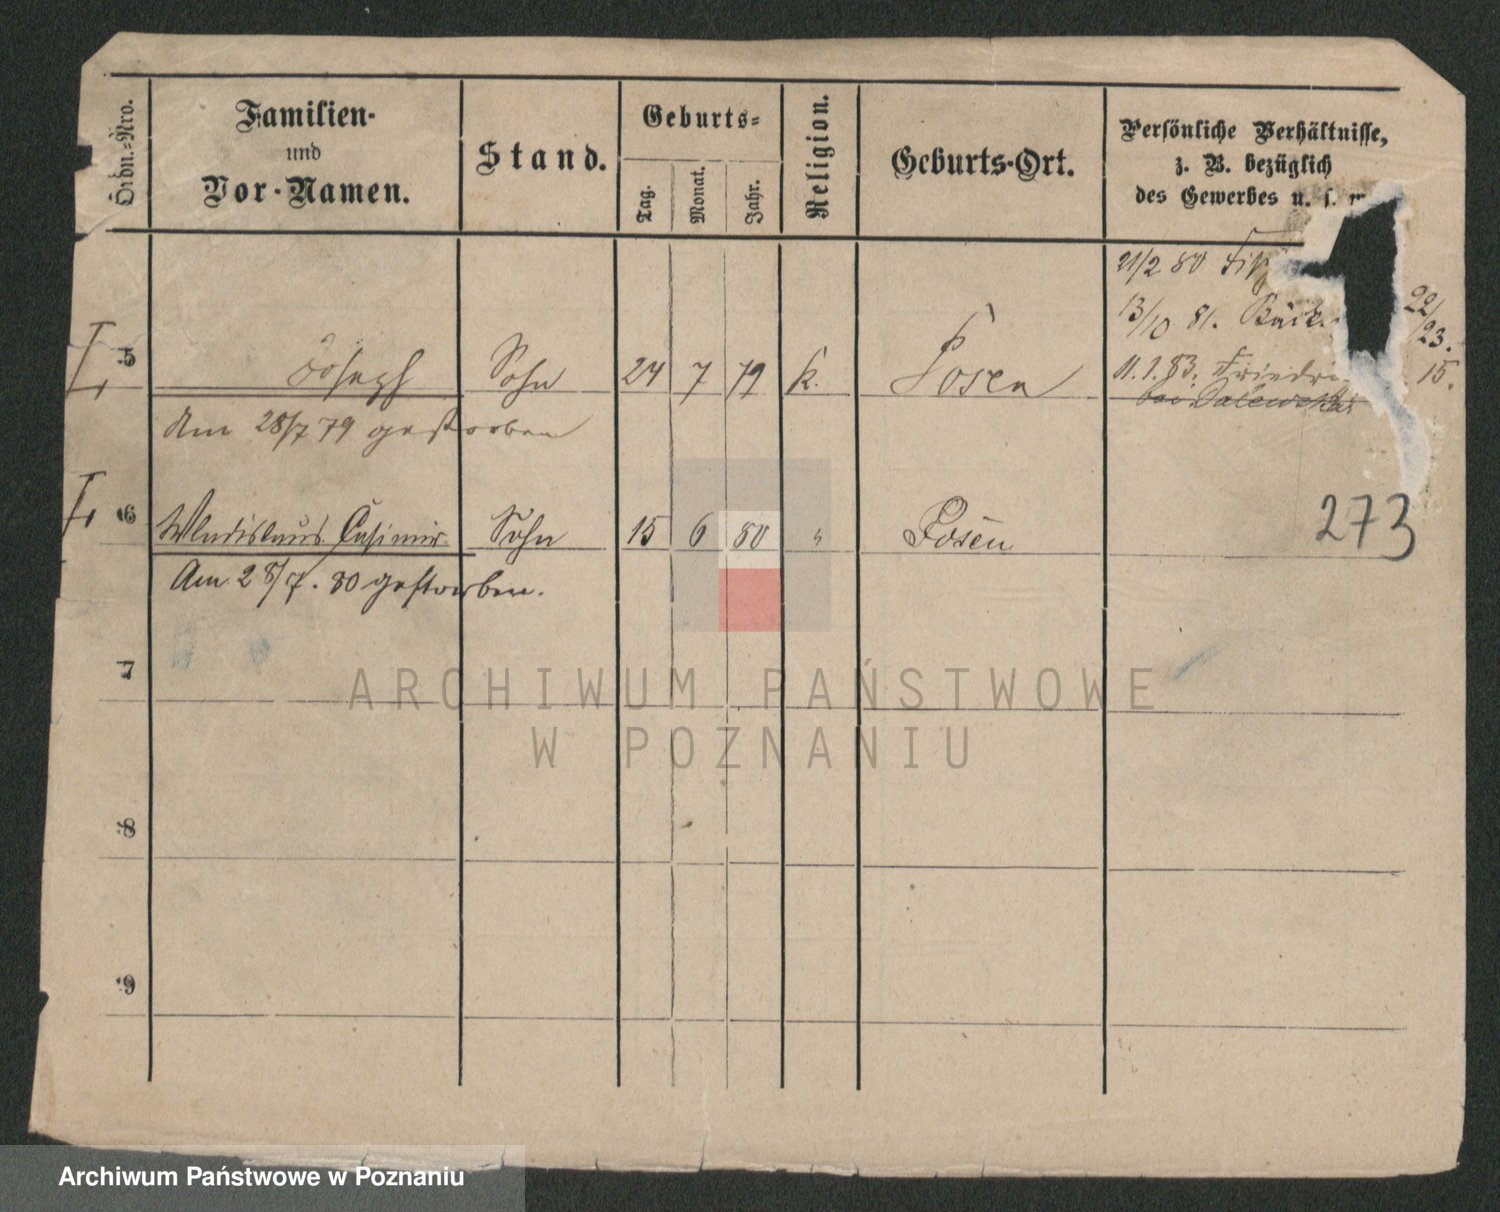 Ordn.-Nro.
Familien-
und
Vor-Namen.
Stand.
Geburts-
Tag.
Monat.
Jahr.
Religion.
Geburts-Ort.
Persönliche Verhältnisse,
z. B. bezüglich
des Gewerbes u. s.
21/2 80
13/10 81. Bäck 22/23.
5 Joseph Sohn 24 7 79 k. Posen
11.1.83. Friedri 15.
bei
Am 28/7 79 gestorben
6 Wladislaus Casimir Sohn 15 6 80 " Posen
273
Am 28/7. 80 gestorben.
7
8
9
ARCHIWUM PAŃSTWOWE
W POZNANIU
Archiwum Państwowe w Poznaniu